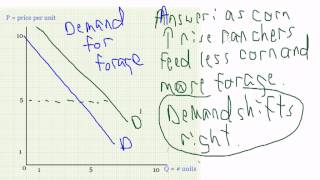 P = price per unit
10
5
0
1
10
Q = # units
Demand
for
forage
D'
D
Answer: as corn
↑ rise ranchers
feed less corn and
more forage.
Demand shifts
right.